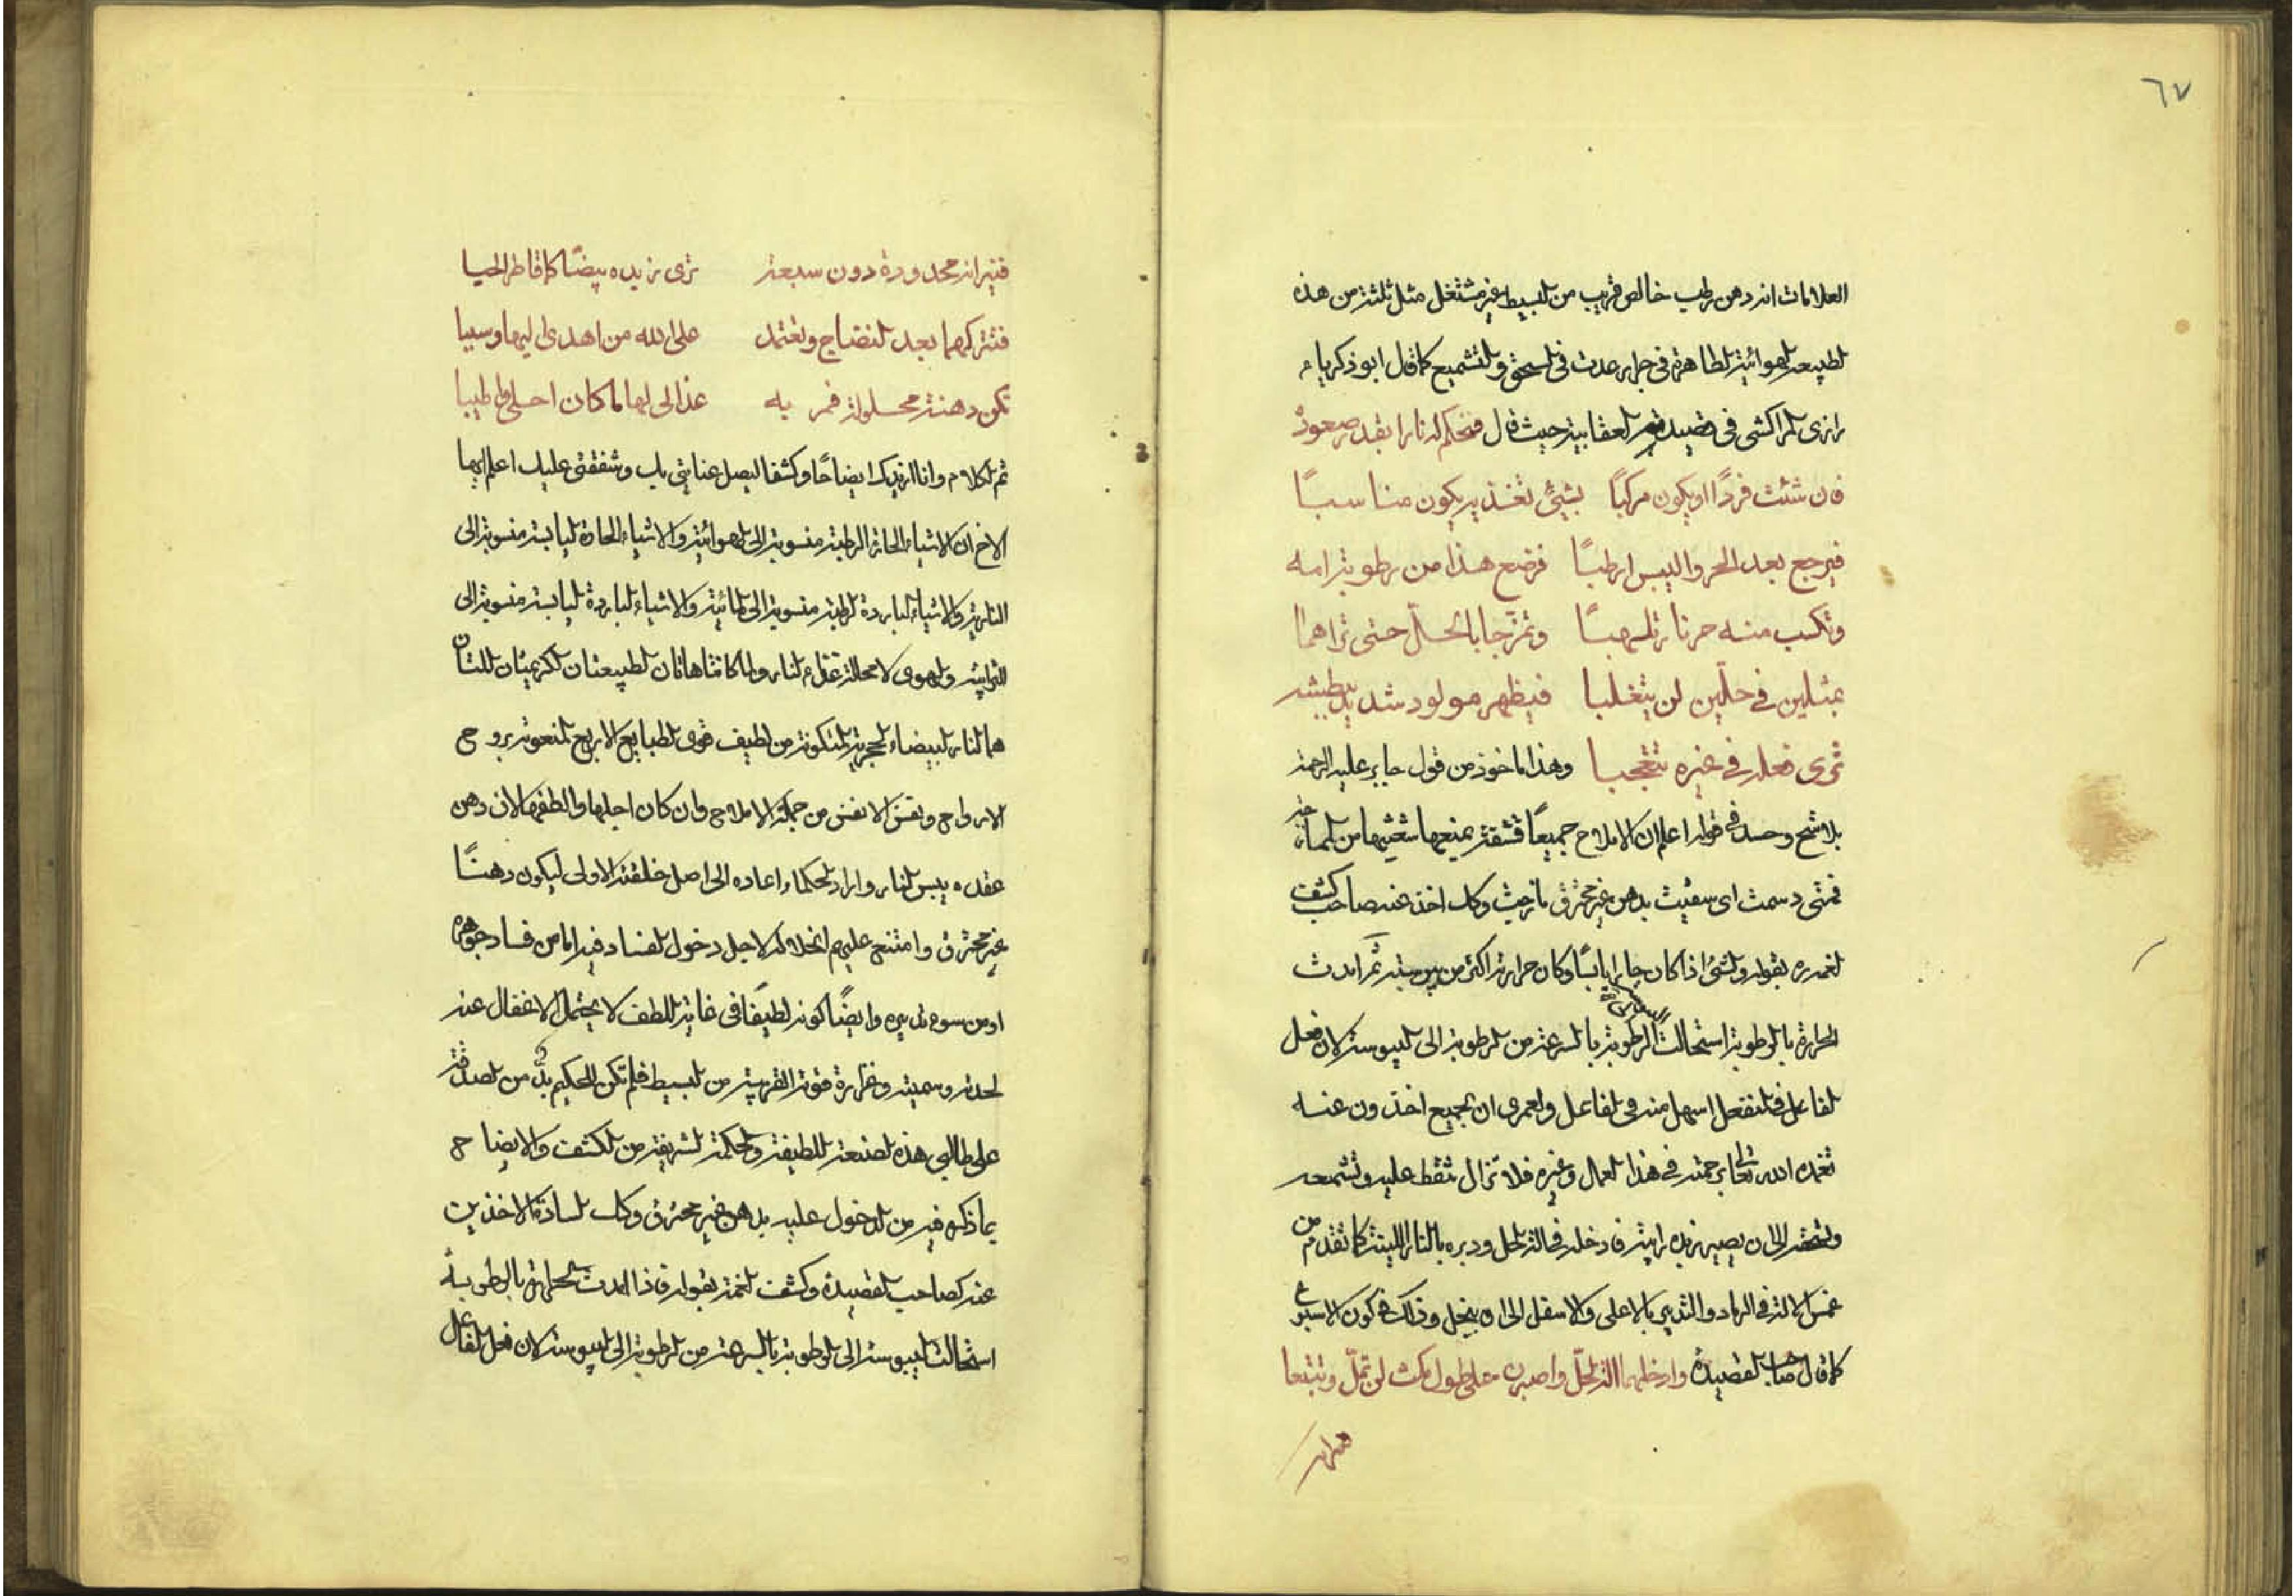 ٦٧
العلامات انه دهن رطب خالص قريب من البسيط غير مشتعل مثل ثلثة من هذه
الطبيعة الهوائية الطاهرة في حرارة عدت في السحق والتشميع كما قال ابو ذكرياء
رازى المراكشى في قصيدته العقابية حيث قال فتحكم له نارا بقدر صعوده
فان شئت فردًا او يكون مركبًا بشئ تغذيه يكون مناسبًا
فيرجع بعد الحر واليبس ارطبًا فرضع هذا من رطوبة امه
وتكسب منه حر نار تلهبًا وتمزجا بالحلّ حتى تراهما
بمثلين في حلّين لن يتغلبا فيظهر مولود شديد بطيشه
ترى فعله في غيره متعجبا وهذا ماخوذ من قول جابر عليه الرحمة
بلا شح وحسد في قوله اعلم ان الاملاح جميعًا قشفة يمنعها شعثها من الممازجة
فمتى دسمت اى سقيت بدهن غير محترق مازجت وكك اخذ عنه صاحب كشف
الغمه بقوله والشئ اذا كان حارا يابسًا وكان حرارته اكثر من يبوسته ثم امدت
الحرارة بالرطوبة استحالت الرطوبة بالسرعة من الرطوبة الى اليبوسة لان فعل
الفاعل في المنفعل اسهل منه في الفاعل ولعمرى ان الجميع اخذون عنه
تغمده الله تعالى برحمته في هذا العمال وغيره فلا تزال تنقط عليه وتشمعه
وتسحقه الى ان يصير زبده رايته فادخله في الة الحل ودبره بالنار اللينة كما تقدم من
غمس الالة في الرماد والتدبير بالاعلى والاسفل الى ان ينحل وذلك في كون الاسبوع
كما قال صاحب القصيدة وادخلهما الة الحلّ واصبرن على طول مكث لن تملّ وتتعبا
فنيرانه
فنيرانه محدودة دون سبعة ترى زبده بيضًا كما قاطر الحيا
فتتركهما بعد النضاج وتعتمد على الله من اهدى اليها وسببا
تكن دهنة محلولة قمرية غدا لى لها ما كان احلى واطيبا
ثم الكلام وانا ازيدك ايضاحًا وكشفا ليصل عنايتى بك وشفقتى عليك اعلم ايها
الاخ ان الاشياء الحارة الرطبة منسوبة الى الهوائية والاشياء الحارة اليابسة منسوبة الى
النارية والاشياء الباردة الرطبة منسوبة الى المائية والاشياء الباردة اليابسة منسوبة الى
الترابية والهوى لا محالة غذاء النار ولما كانتا هاتان الطبيعتان الكريمتان اللتان
هما النار البيضاء الحجرية المتكونة من لطيف قوى الطبايع الاربع المنعوتة بروح
الارواح ونفس الانفس من جملة الاملاح وان كان اجلها والطفها لانه دهن
عقده يبس النار واراد الحكماء اعاده الى اصل خلقته الاولى ليكون دهنًا
غير محترق وامتنع عليهم انحلاله لاجل دخول الفساد فيه اما من فساد جوهره
او من سوء تدبيره وايضًا كونه لطيفًا في غاية اللطف لا يحتمل الاغفال عنه
لحدته وسميته وغزارة قوته القريبة من البسيط فلم تكن للحكيم بدّ من الصدقة
على طالبى هذه الصنعة اللطيفة والحكمة الشريفة من الكشف والايضاح
بما ذكره فيه من الدخول عليه بدهن غير محترق وكك السادة الاخذين
عنه كصاحب القصيدة وكشف الغمة بقوله فاذا امدت الحرارة بالرطوبة
استحالت اليبوسة الى الرطوبة بالسرعة من الرطوبة الى اليبوسة لان فعل الفاعل